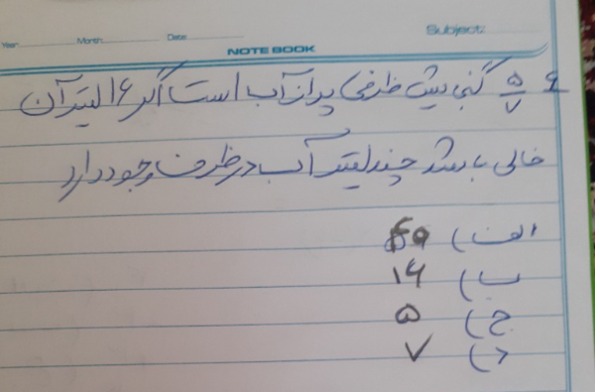 Year: Month: Date: Subject:
NOTE BOOK
۶ ۵/۷ گنجایش ظرفی پر از آب است اگر ۱۶ لیتر آن
خالی باشد چند لیتر آب در ظرف وجود دارد
الف) ۴۰
ب) ۱۴
ج) ۵
د) ۷